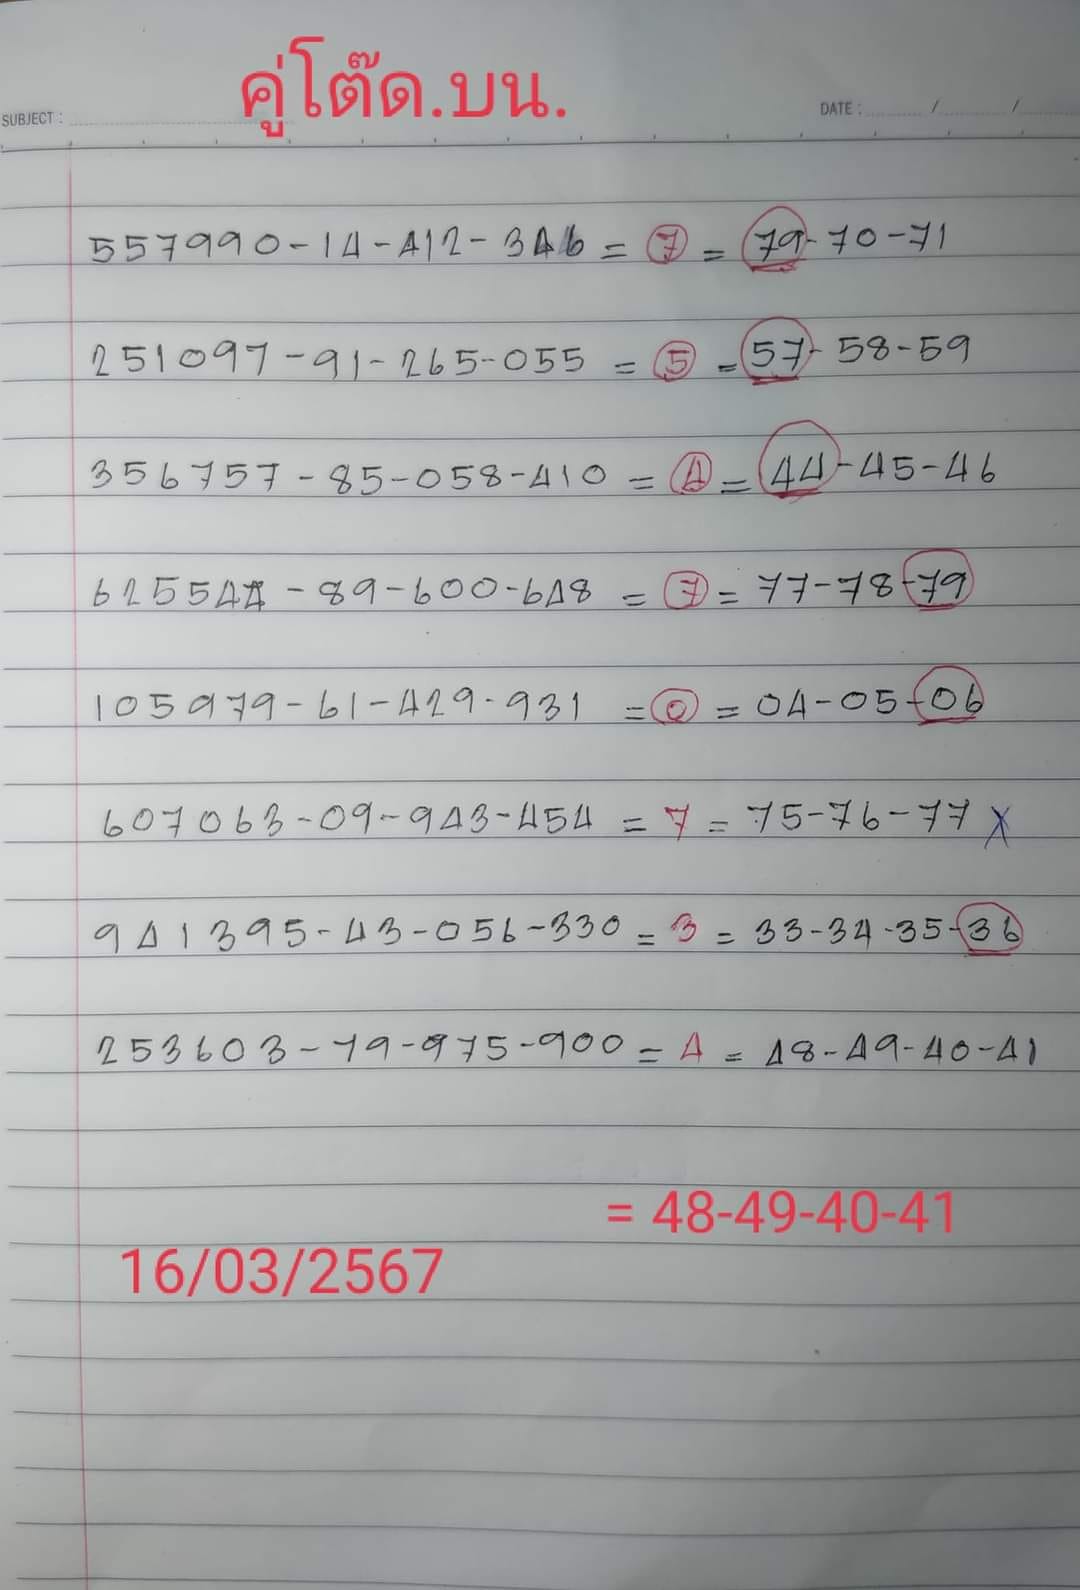 คู่โต๊ด.บน.
SUBJECT : DATE : / /
557990-14-412-346 = 7 = 79-70-71
251097-91-265-055 = 5 = 57-58-59
356757-85-058-410 = 4 = 44-45-46
625544-89-600-648 = 7 = 77-78-79
105979-61-429-931 = 0 = 04-05-06
607063-09-943-454 = 7 = 75-76-77 X
941395-43-056-330 = 3 = 33-34-35-36
253603-79-975-900 = 4 = 48-49-40-41
= 48-49-40-41
16/03/2567